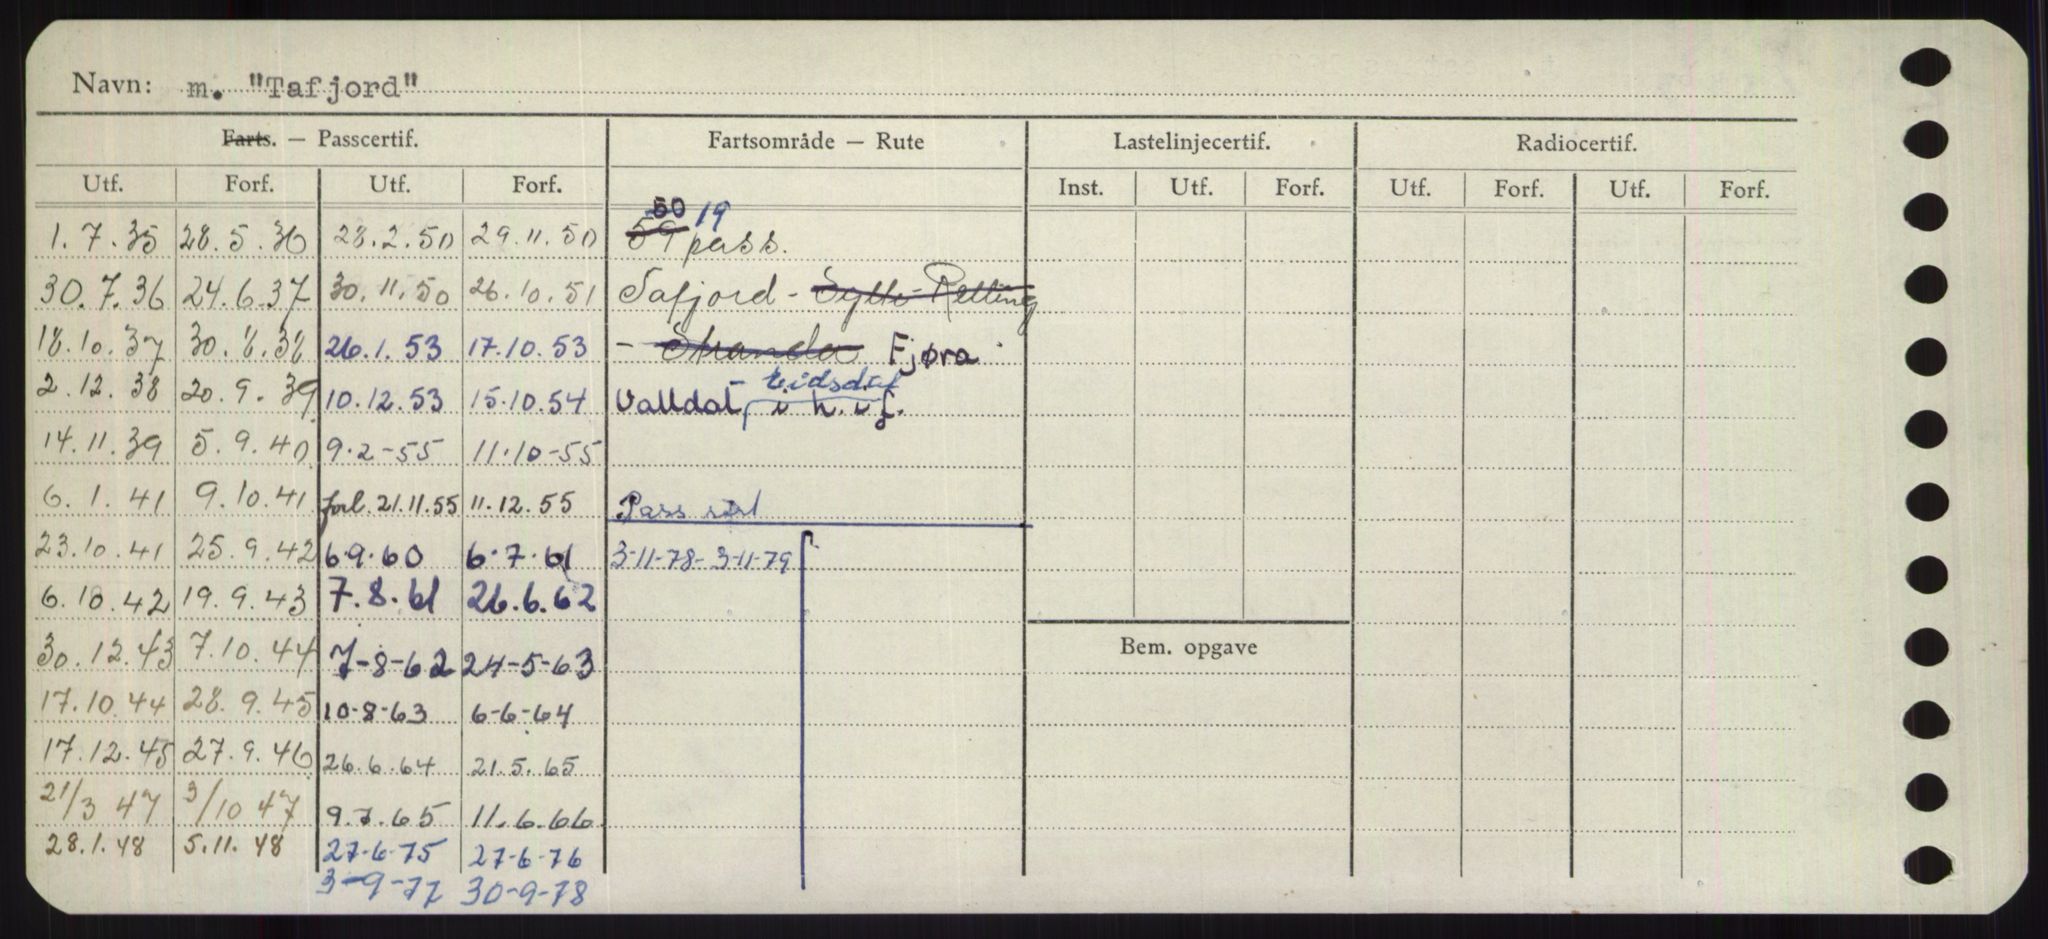 Navn: m. "Tafjord"
Farts. — Passcertif. Fartsområde — Rute Lastelinjecertif. Radiocertif.
Utf. Forf. Utf. Forf. Inst. Utf. Forf. Utf. Forf. Utf. Forf.
50 19
1.7.35 28.5.36 28.2.50 29.11.50 59 pass.
30.7.36 24.6.37 30.11.50 26.10.51 Tafjord - Sylte - Relling
18.10.37 30.8.38 26.1.53 17.10.53 - Stranda Fjøra
2.12.38 20.9.39 10.12.53 15.10.54 Valldal, - Eidsdal i h. u f.
14.11.39 5.9.40 9.2-55 11.10-55
6.1.41 9.10.41 forl. 21.11.55 11.12.55 Pass sert
23.10.41 25.9.42 6.9.60 6.7.61 3-11-78 - 3-11-79
6.10.42 19.9.43 7.8.61 26.6.62
30.12.43 7.10.44 7-8-62 24-5-63 Bem. opgave
17.10.44 28.9.45 10-8-63 6-6-64
17.12.45 27.9.46 26.6.64 21.5.65
21/3 47 3/10 47 9.7.65 11.6.66
28.1.48 5.11.48 27-6-75 27-6-76
3-9-77 30-9-78